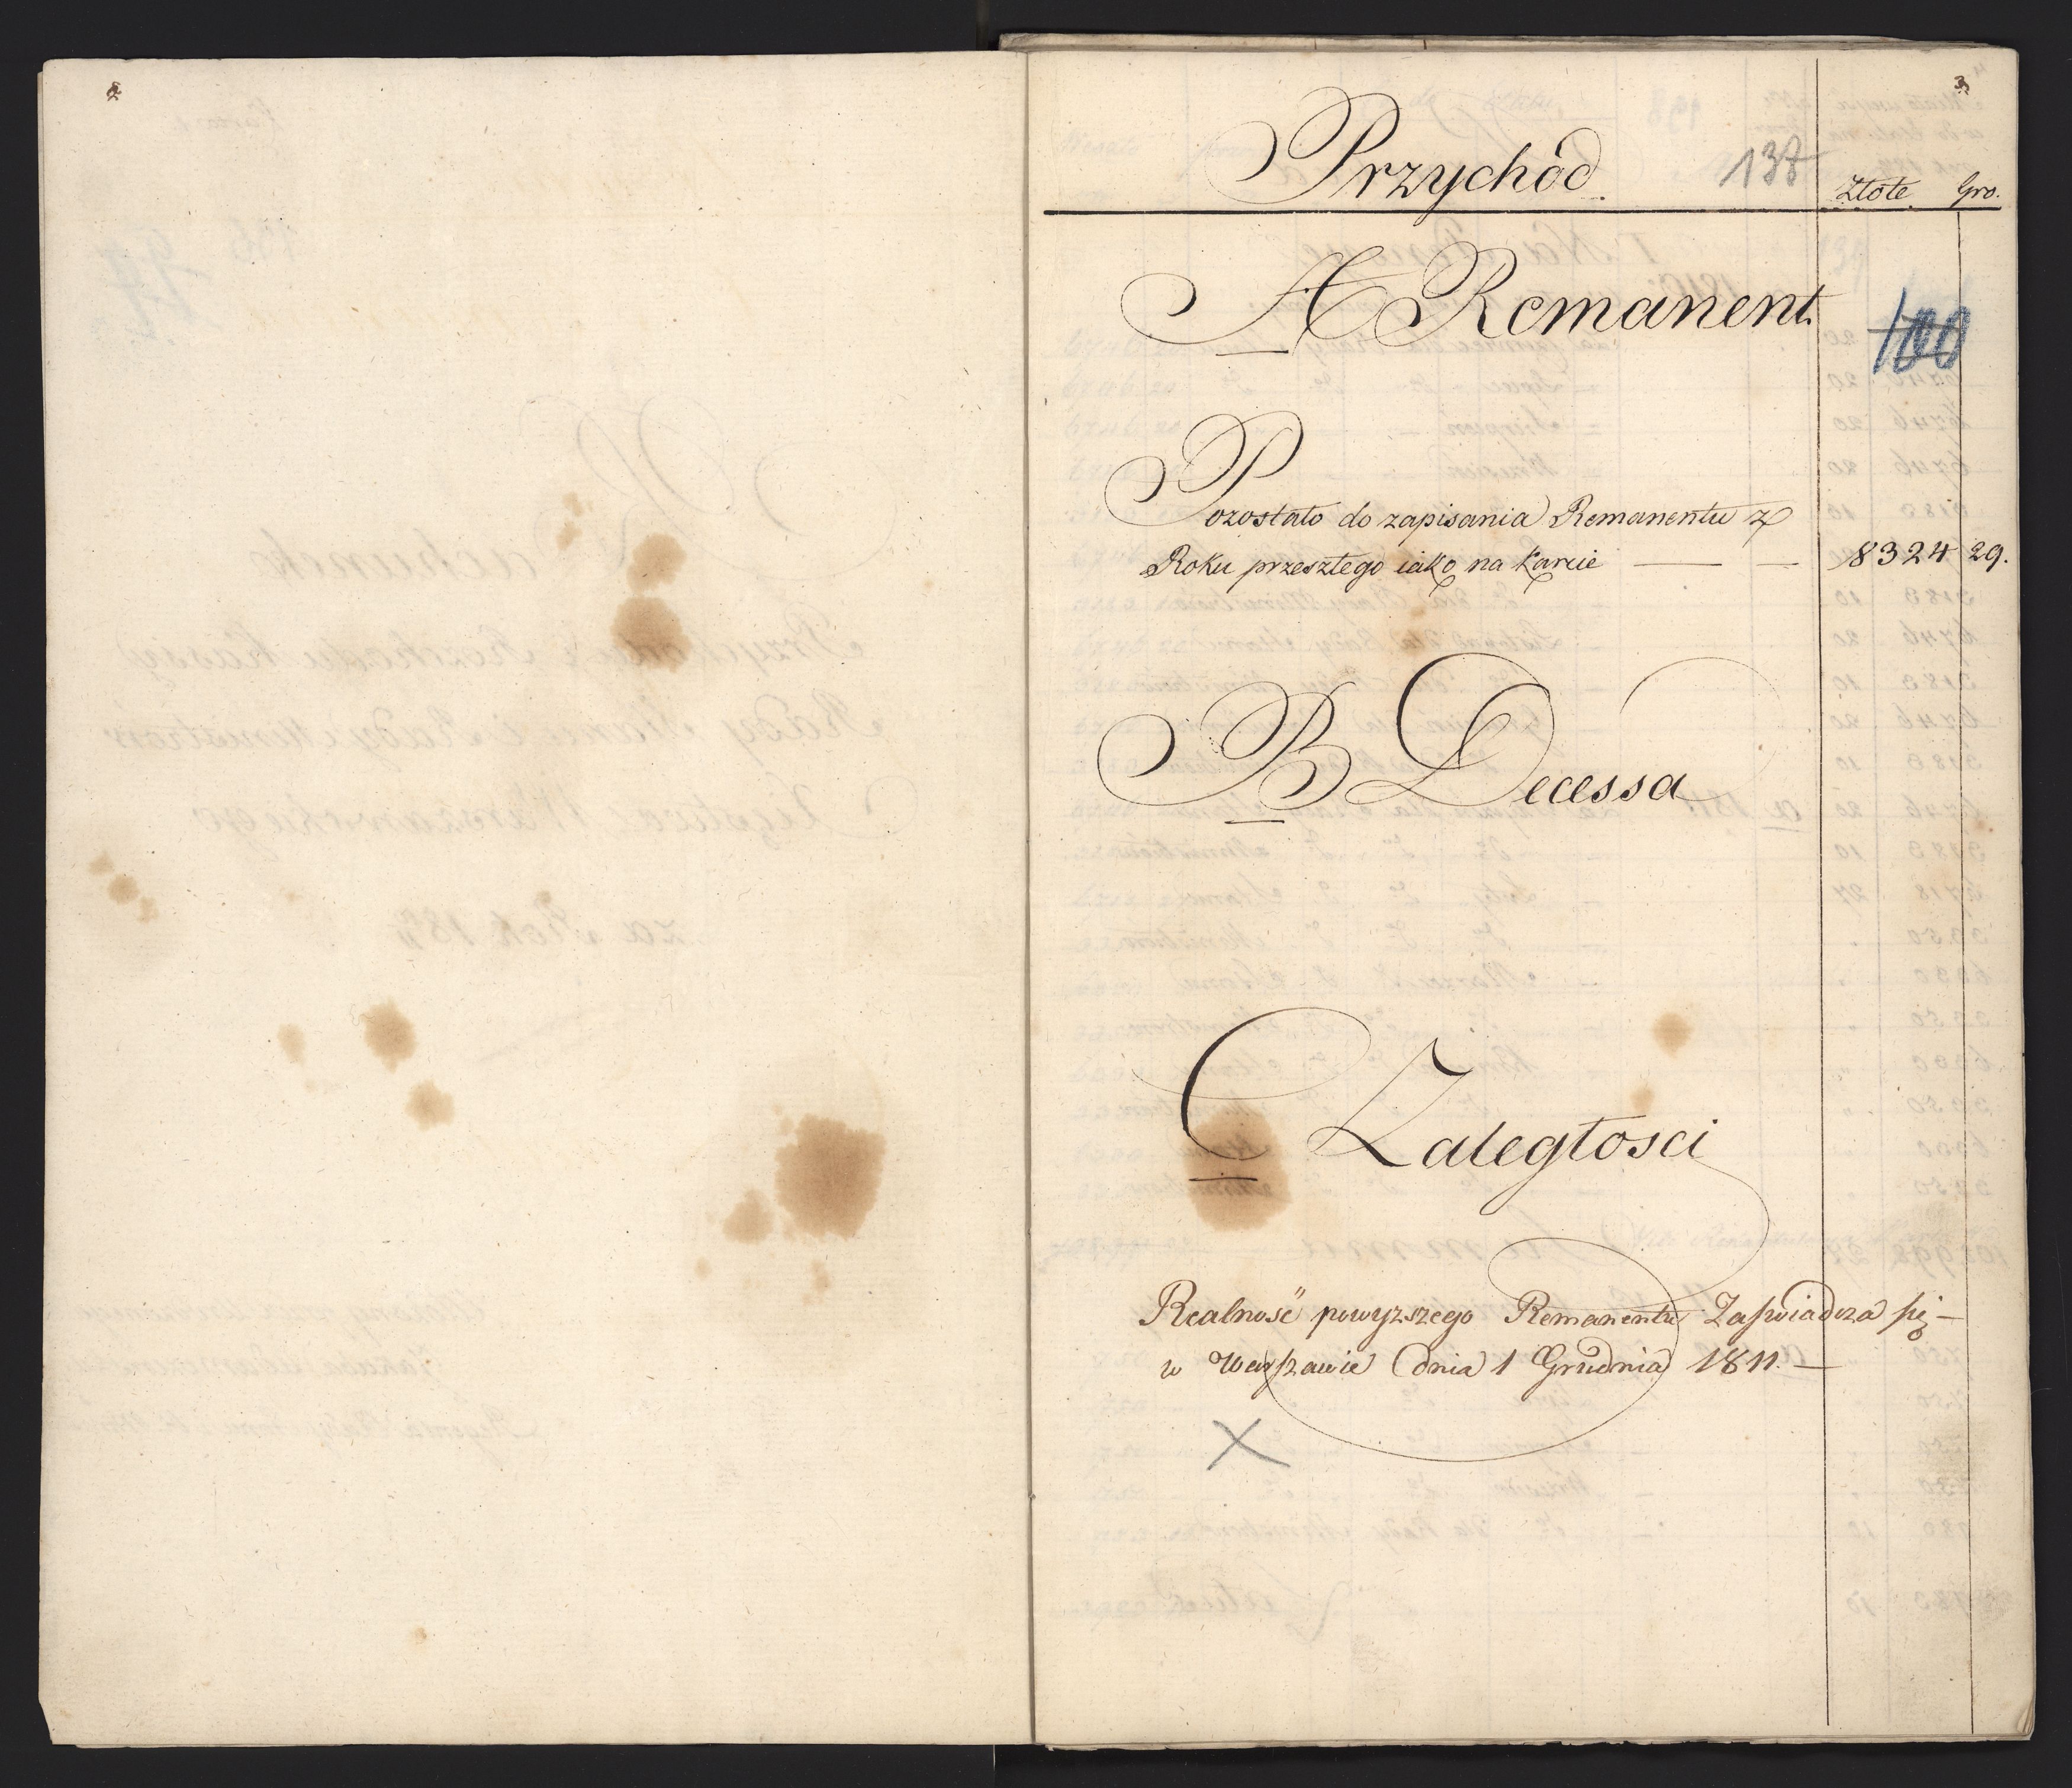 2
3
Przychód
138
Złote Gro.
A Remanent.
100
Pozostało do zapisania Remanentu z
Roku przeszłego iako na karcie — — 8324 29.
B Decessa
C Zaległosci
Realność powyzszego Remanentu Zaświadcza się —
w Warszawie dnia 1 Grudnia 1811. —
X